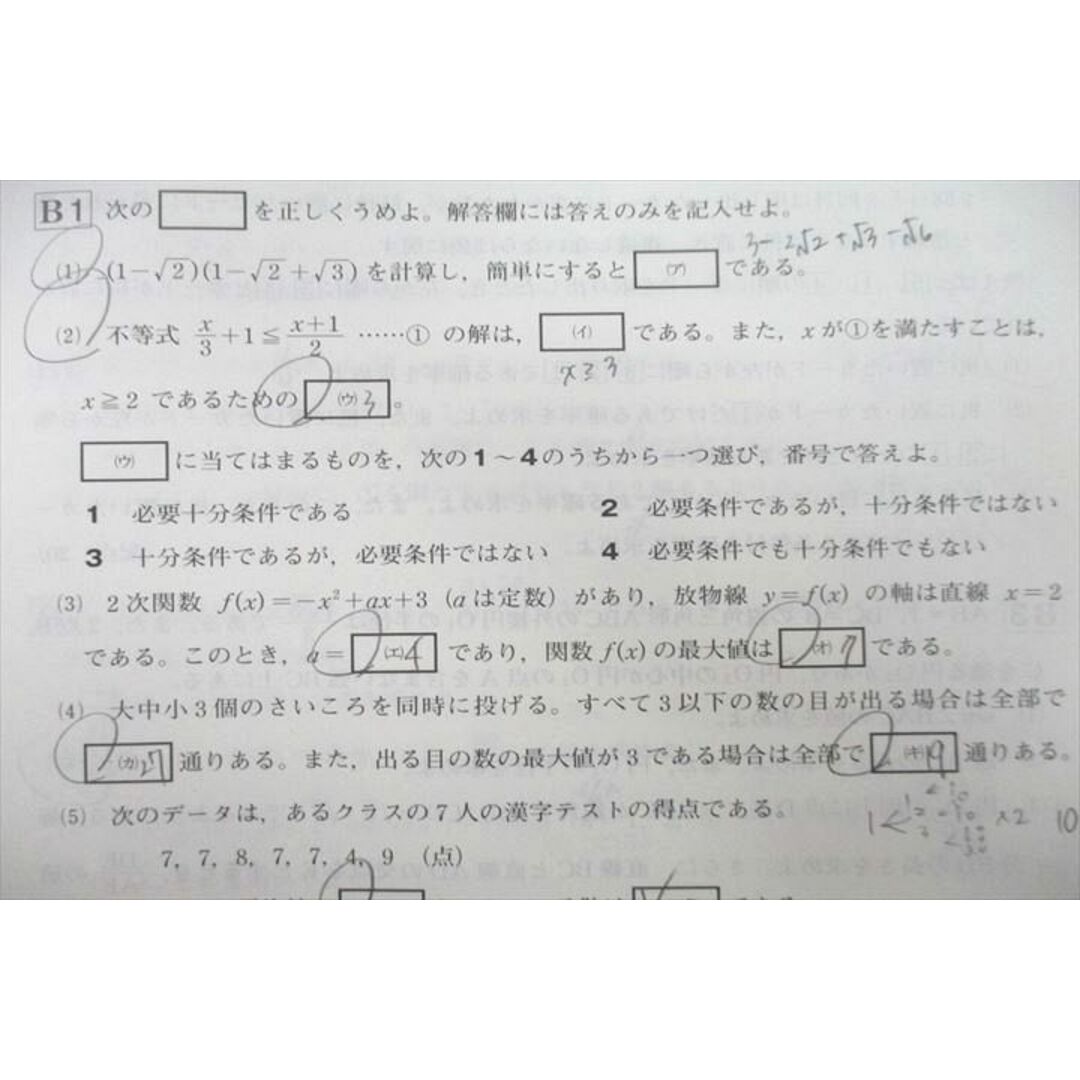 B1 次の□を正しくうめよ。解答欄には答えのみを記入せよ。
3-2√2+√3-√6
(1) (1-√2)(1-√2+√3)を計算し，簡単にすると (ア) である。
(2) 不等式 x/3+1≦(x+1)/2 ……① の解は， (イ) である。また，xが①を満たすことは，
x≧3
x≧2 であるための (ウ) 3 。
(ウ) に当てはまるものを，次の1～4のうちから一つ選び，番号で答えよ。
1 必要十分条件である 2 必要条件であるが，十分条件ではない
3 十分条件であるが，必要条件ではない 4 必要条件でも十分条件でもない
(3) 2次関数 f(x)=-x²+ax+3（aは定数）があり，放物線 y=f(x) の軸は直線 x=2
である。このとき，a= (エ) 4 であり，関数f(x)の最大値は (オ) 7 である。
(4) 大中小3個のさいころを同時に投げる。すべて3以下の数の目が出る場合は全部で
(カ) 27 通りある。また，出る目の数の最大値が3である場合は全部で (キ) 19 通りある。
(5) 次のデータは，あるクラスの7人の漢字テストの得点である。
×2 10
7，7，8，7，7，4，9 （点）
である